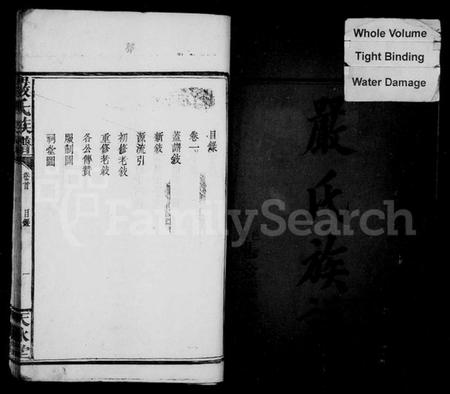 Whole Volume
Tight Binding
Water Damage
嚴氏族
目錄
卷一
蓋譜敘
新敘
源流引
初修老敘
重修老敘
各公傳贊
服制圖
祠堂圖
嚴氏族譜
卷首
目錄
一
FamilySearch